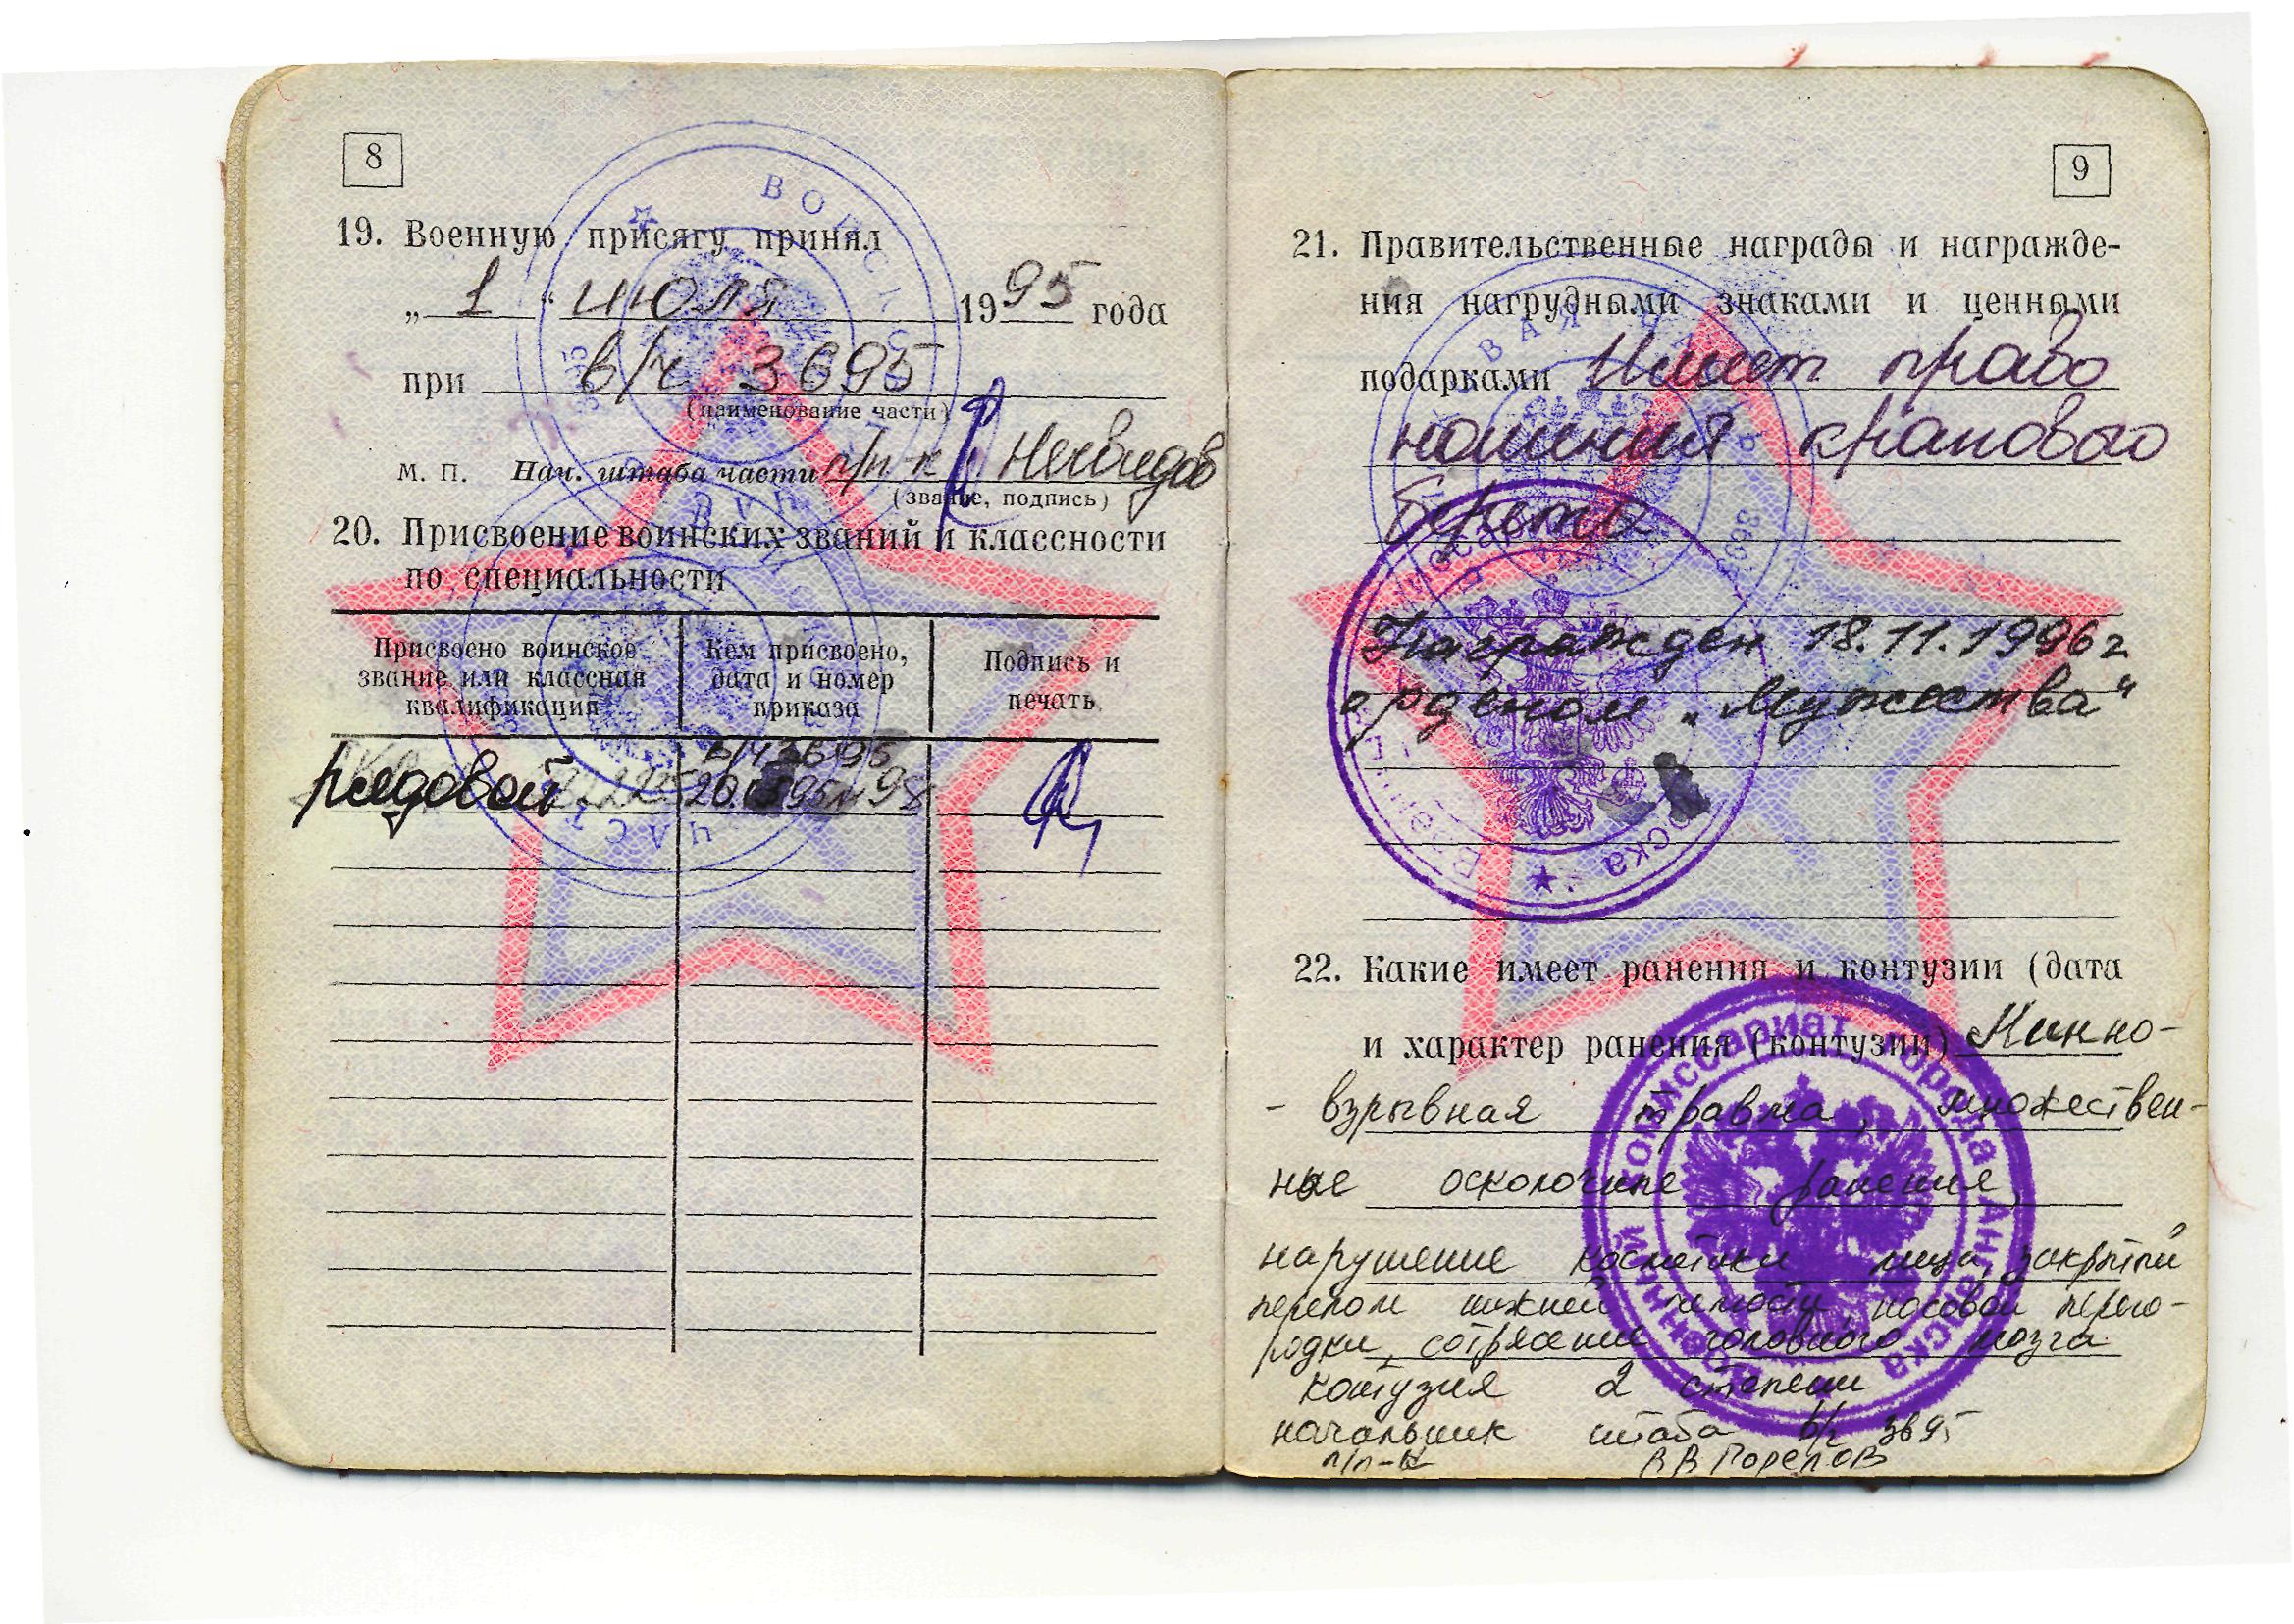 8
19. Военную присягу принял
„ 1 “ июля 1995 года
при в/ч 3695
(наименование части)
М. П. Нач. штаба части п/п-к Несвидов
(звание, подпись)
20. Присвоение воинских званий и классности
по специальности
Присвоено воинское звание или классная квалификация
Кем присвоено, дата и номер приказа
Подпись и печать
в/ч 3695
рядовой
ВОЙСКОВАЯ ЧАСТЬ
9
21. Правительственные награды и награжде-
ния нагрудными знаками и ценными
подарками Имеет право
ношения крапового
берета
Награжден 18.11.1996г
орденом „Мужества“
22. Какие имеет ранения и контузии (дата
и характер ранения (контузии) Минно-
- взрывная травма, множествен-
ные осколочные ранения,
нарушение косметики лица, закрытый
перелом нижней челюсти носовой перего-
родки, сотрясение головного мозга
контузия 2 степени
начальник штаба в/ч 3695
п/п-к В В Горелов
Военный комиссариат города Ангарска